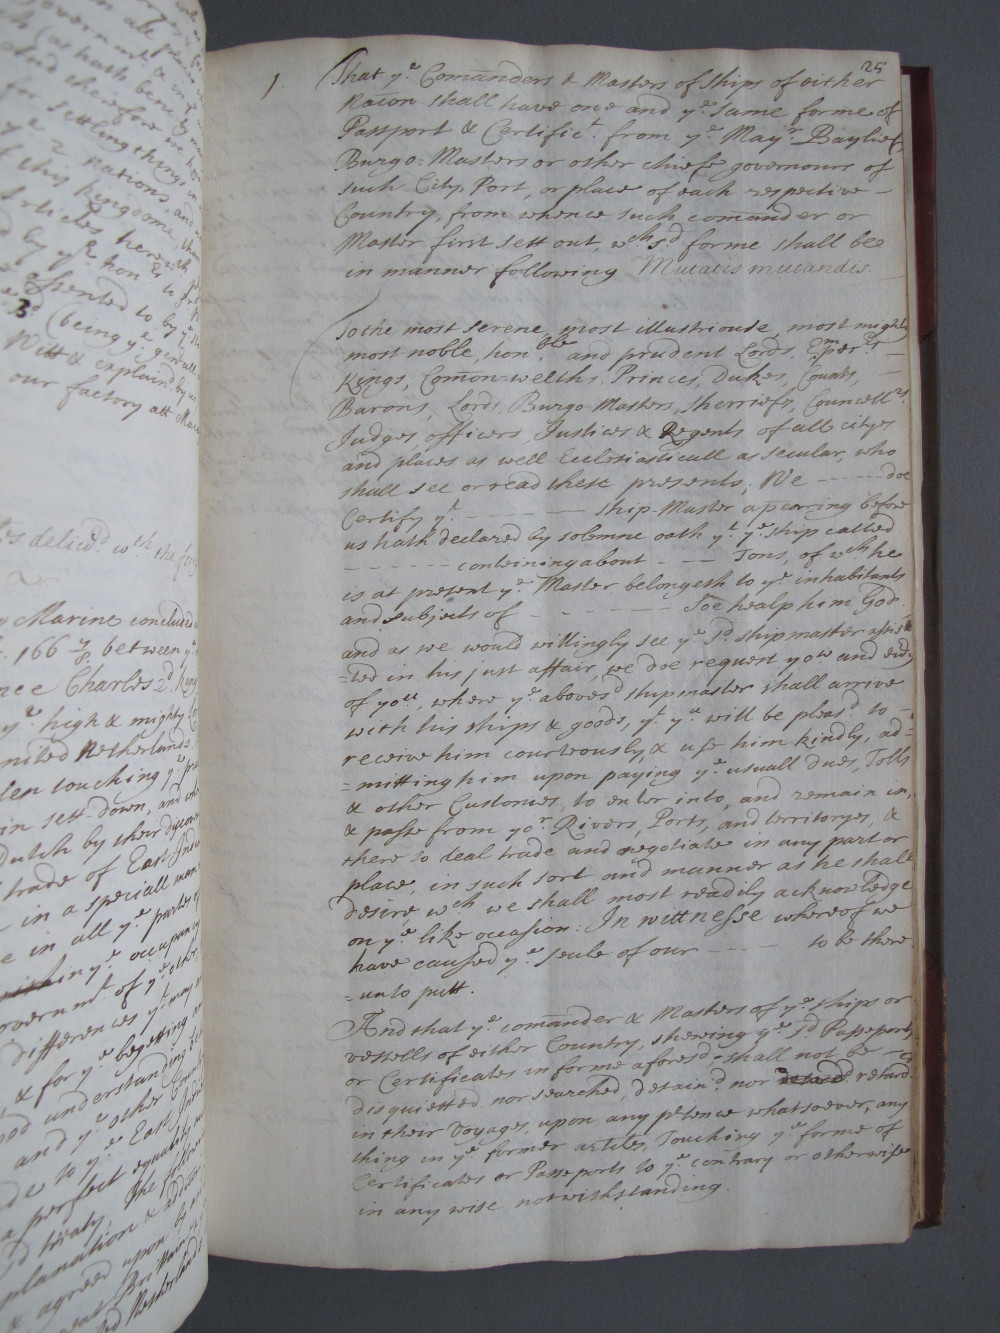 25
1. That ye Comanders & Masters of ships of either
Nacon shall have one and ye same forme of
Passport & Certifict. from ye Mayr. Bayliefs
Burgo-Masters or other chiefe governours of
such City, Port, or place of each respective -
Country, from whence such comander or
Master first sett out, wch sd forme shall bee
in manner following Mutatis mutandis.
To the most serene, most illustriouse, most mighty
most noble, honble and prudent Lords, Emperrs
Kings, Comon-welths, Princes, Dukes, Counts -
Barons, Lords, Burgo-Masters, Sherriefs, Councellrs.
Judges, officers, Justices & Regents of all cityes
and places as well Ecclesiasticall as secular, who
shall see or read these presents, We - - - - - doe
Certify yt. - - - - - ship-Master apearing before
us hath declared by solemne oath yt ye ship called
- - - - - - - conteining about - - - - Tons, of wch he
is at present ye Master belongeth to ye inhabitants
and subjects of - - - - - - - Soe healp him God.
and as we would willingly see ye sd shipmaster assis
=ted in his just affair, we doe request you and every
of you, where ye abovesd shipmaster shall arrive
with his ships & goods, yt ye will be pleasd to -
receive him courteously, & use him kindly, ad=
=mitting him upon paying ye usuall dues, Tolls
& other Customes, to enter into, and remain in,
& passe from yor Rivers, Ports, and territoryes, &
there to deal trade and negotiate in any part or
place, in such sort and manner as he shall
desire wch we shall most readily acknowledge
on ye like occasion: In wittnesse whereof we
have caused ye seale of our - - - - to be there
=unto putt.
And that ye comander & Masters of ye ships or
vessells of either Country, shewing ye sd Passeports
or Certificates in forme aforesd shall not be -
disquietted nor searched, detaind nor retard
in their Voyages, upon any pretence whatsoever, any
thing in ye former articles, Touching ye forme of
Certificates or Passeports to ye contrary or otherwise
in any wise notwithstanding.
Governmt. &
(as hath bene
and therefore
for settling things in
ye 2 nations and
of this kingdome
Articles herewth
by ye honble
assented to by ye
(being ye genrall
Witt & explaind by
our factory att
delivd wth the
Marine concluded
1667/8 between
Charles 2d King
ye high & mighty
united Netherlands
touching ye
in sett-down, and
Dutch by their
trade of East-India
in a speciall
in all ye partes
ye occupancy
governmt of ye other,
differences yt may
& for ye begetting
good understanding
and ye other Country
to ye East-India
a perfect equality
treaty, the
explanation & addition
& agreed upon by
great Brittain
Netherlands